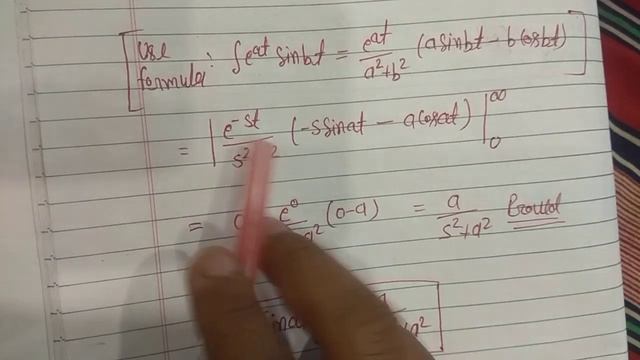 Use formula: ∫e^at sinbt = e^at / a²+b² (asinbt - bcosbt)
= | e^-st / s² (-ssinat - acosat) |₀^∞
= e⁰ / a² (0-a) = a / s²+a² Proved
a²